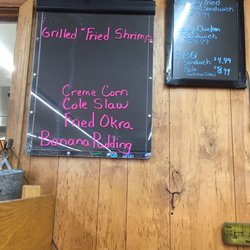 Grilled "Fried Shrimp
Creme Corn
Cole Slaw
Fried Okra
Banana Pudding
Fried
Sandwich
Chicken
Sandwich
Sandwich $4.99
Plate $8.99